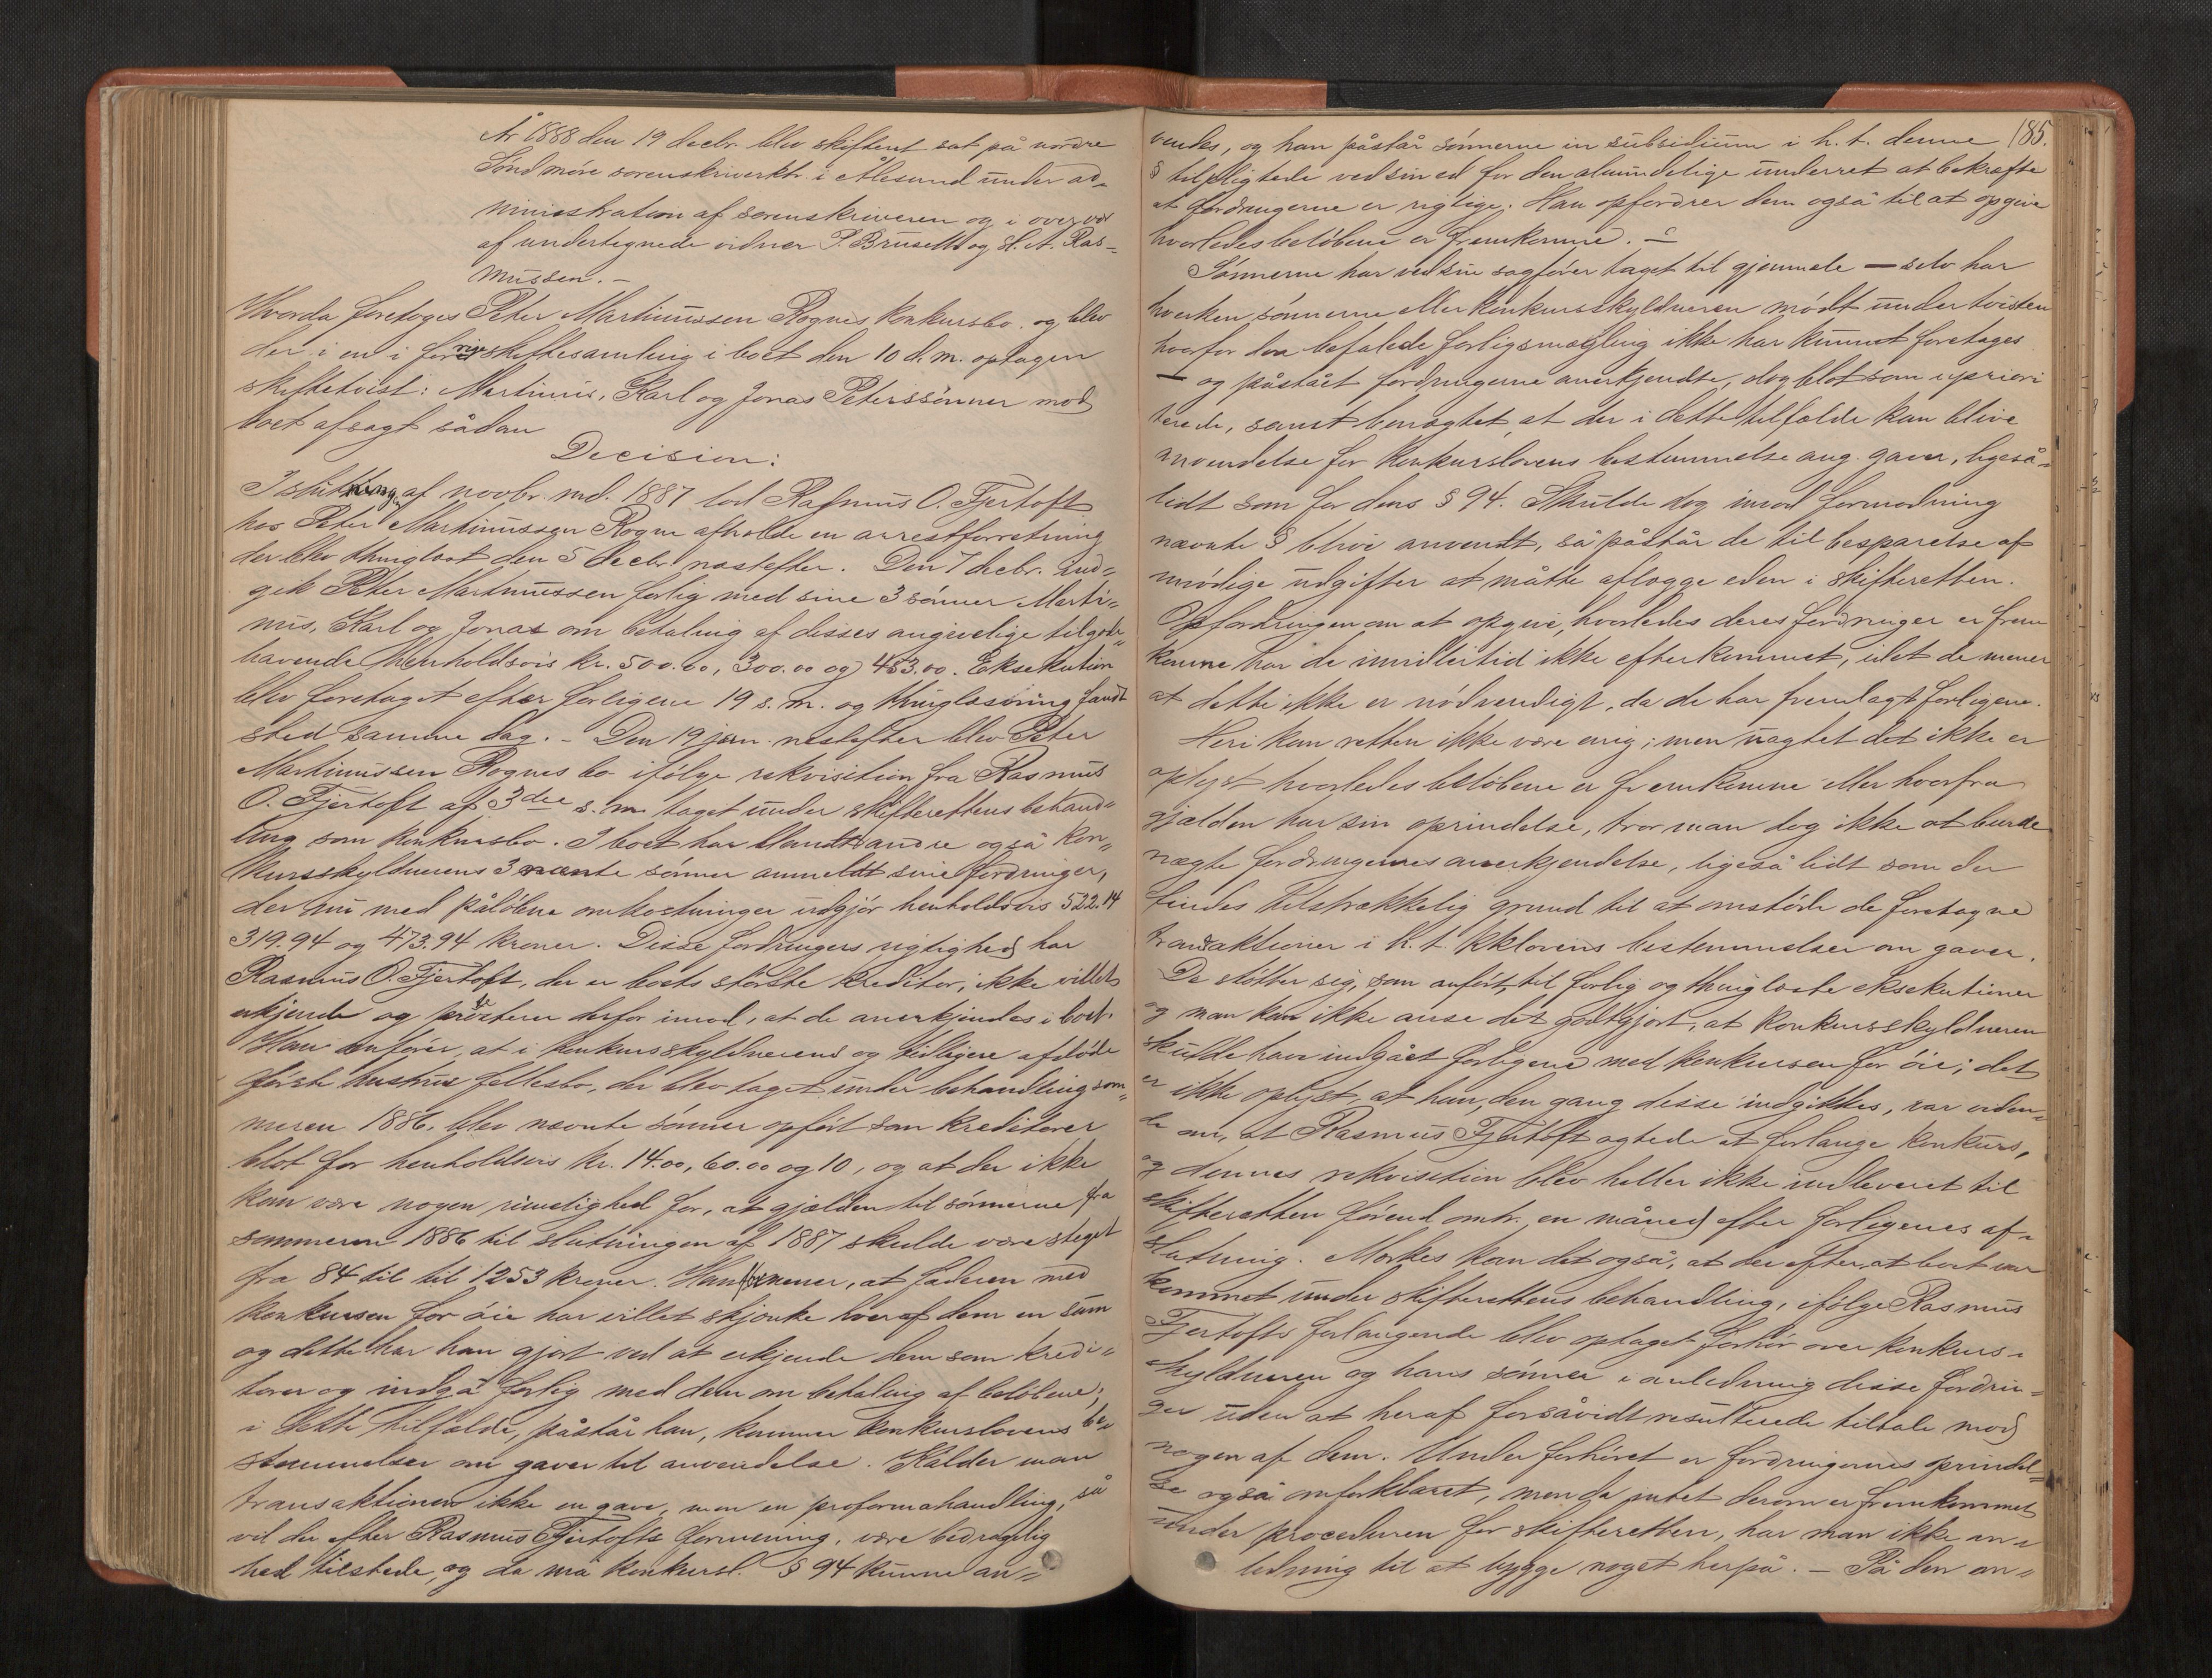 År 1888 den 19 decbr. blev skifteret sat på nordre
Söndmöre sorenskriverktr. i Ålesund under ad-
ministration af sorenskriveren og i overvær
af undertegnede vidner P. Brusell og H. A. Ras-
mussen. -
Hvorda foretoges Peter Martinussen Rognes konkursbo. og blev
der i en i forrige skiftesamling i boet den 10 d. m. optagen
skiftetvist: Martinus, Karl og Jonas Peterssönner mod
boet afsagt sådan
Decision:
I slutningen af novbr. md. 1887 lod Rasmus O. Fjertoft
hos Peter Martinussen Rogne afholde en arrestforretning
der blev thinglæst den 5 decbr. næstefter. Den 7 decbr. ind-
gik Peter Martinussen forlig med sine 3 sönner Marti-
nus, Karl og Jonas om betaling af disses angivelige tilgode-
havende henholdsvis kr. 500.00, 300.00 og 453.00. Eksekution
blev foretaget efter forligene 19 s. m. og thinglæsning fandt
sted samme dag. - Den 19 jan. nestefter blev Peter
Martinussen Rognes bo ifölge rekvisition fra Rasmus
O. Fjertoft af 3die s. m. taget under skifterettens behand-
ling som konkursbo. I boet har blandt andre også kon-
kursskyldnerens 3 nævnte sönner anmeldt sine fordringer,
der nu med pålöbne omkostninger udgjör henholdsvis 522.14
319.94 og 473.94 kroner. Disse fordringers rigtighed har
Rasmus O. Fjertoft, der er boets störste kreditor, ikke villet
erkjende og proterer derfor imod, at de anerkjendes i boet.
Han anförer, at i konkursskyldnerens og tidligere afdöde
förste hustrus fellesbo, der blev taget under behandling som-
meren 1886, blev nævnte sönner opfört som kreditorer
blot for henholdsvis kr. 14.00, 60.00 og 10, og at der ikke
kan være nogen rimelighed for, at gjælden til sönnerne fra
sommeren 1886 til slutningen af 1887 skulde være steget
fra 84 til til 1253 kroner. Han formener, at faderen med
konkursen for öie har villet skjænke hver af dem en sum
og dette har han gjort ved at erkjende dem som kredi-
torer og indgå forlig med dem om betaling af belöbene;
i dette tilfælde, påstår han, kommer konkurslovens be-
stemmelser om gaver til anvendelse. Kalder man
transaktionen ikke en gave, men en proformahandling, så
vil der efter Rasmus Fjertofts formening, være bedragelig
hed tilstede, og da må konkursl. § 94 kunne an-
185.
vendes, og han påstår sönnerne in subsidium i h. t. denne
§ tilpligtede ved sin ed for den almindelige underret at bekræfte
at fordringerne er rigtige. Han opfordrer dem også til at opgive
hvorledes belöbene er fremkomne. -
Sönnerne har ved sin sagförer taget til gjenmæle — selv har
hverken sönnerne eller konkursskyldneren mödt under tvisten
hvorfor den befalede forligsmægling ikke har kunnet foretages
— og påstået fordringerne anerkjendte, dog blot som upriori
terede, samt benægtet, at der i dette tilfælde kan blive
anvendelse for konkurslovens bestemmelse ang. gaver, ligeså-
lidt som for dens § 94. Skulde dog imod formodning
nævnte § blive anvendt, så påstår de til besparelse af
unödige udgifter at måtte aflægge eden i skifteretten.
Opfordringen om at opgive, hvorledes deres fordringer er frem
komne har de imidlertid ikke efterkommet, idet de mener
at dette ikke er nödvendigt, da de har fremlagt forligene.
Heri kan retten ikke være enig; men uagtet det ikke er
oplyst hvorledes belöbene er fremkomne eller hvorfra
gjælden har sin oprindelse, tror man dog ikke at burde
nægte fordringernes anerkjendelse, ligeså lidt som der
findes tilstrækkelig grund til at omstöde de foretagne
transaktioner i h. t. kklovens bestemmelser om gaver.
De stötter sig, som anfört, til forlig og thinglæste eksekutioner
og man kan ikke anse det godtgjort, at konkursskyldneren
skulde have indgået forligene med konkursen for öie; det
er ikke oplyst, at han, den gang disse indgikkes, var viden-
de om, at Rasmus Fjertoft agtede at forlange konkurs,
og dennes rekvisition blev heller ikke indleveret til
skifteretten förend omtr. en måned efter forligenes af-
slutning. Mærkes kan det også, at der efter, at boet var
kommet under skifterettens behandling, ifölge Rasmus
Fjertofts forlangende blev optaget forhör over konkurs-
skyldneren og hans sönner i anledning disse fordrin-
ger uden at heraf forsåvidt resulterede tiltale mod
nogen af dem. Under forhöret er fordringernes oprindel-
se også omforklaret, men da intet derom er fremkommet
under proceduren for skifteretten, har man ikke an-
ledning til at bygge noget herpå. - På den an-